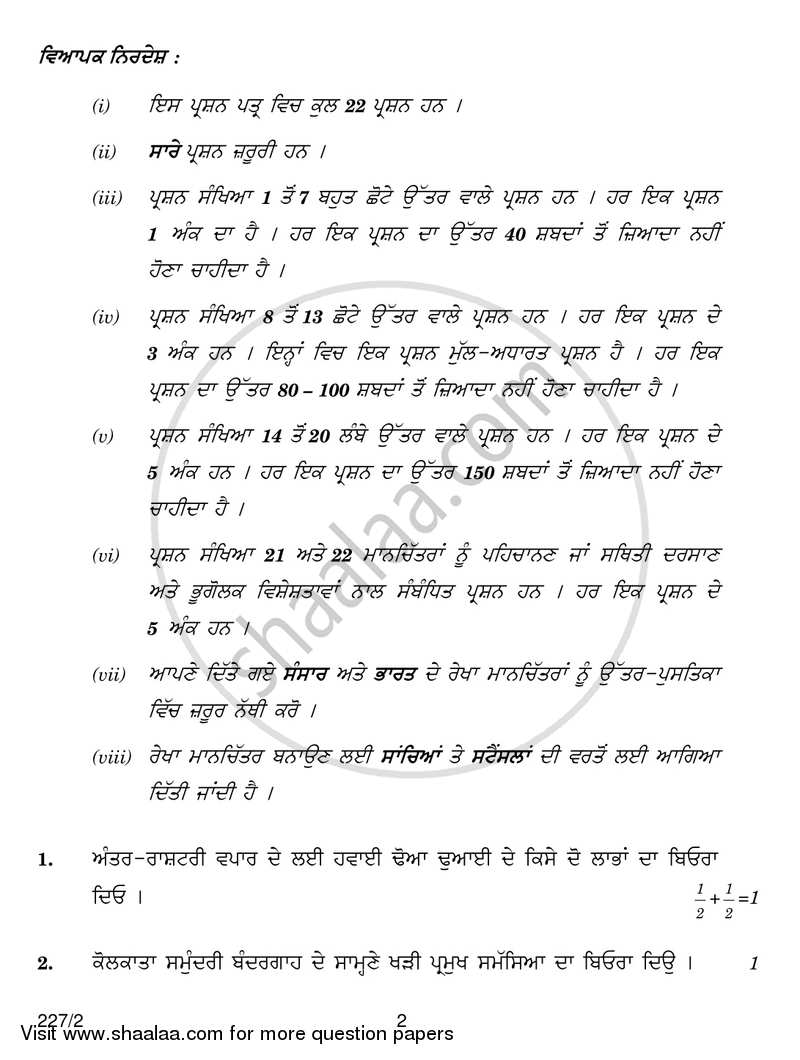 ਵਿਆਪਕ ਨਿਰਦੇਸ਼ :
(i) ਇਸ ਪ੍ਰਸ਼ਨ ਪਤ੍ਰ ਵਿਚ ਕੁਲ 22 ਪ੍ਰਸ਼ਨ ਹਨ ।
(ii) ਸਾਰੇ ਪ੍ਰਸ਼ਨ ਜ਼ਰੂਰੀ ਹਨ ।
(iii) ਪ੍ਰਸ਼ਨ ਸੰਖਿਆ 1 ਤੋਂ 7 ਬਹੁਤ ਛੋਟੇ ਉੱਤਰ ਵਾਲੇ ਪ੍ਰਸ਼ਨ ਹਨ । ਹਰ ਇਕ ਪ੍ਰਸ਼ਨ
1 ਅੰਕ ਦਾ ਹੈ । ਹਰ ਇਕ ਪ੍ਰਸ਼ਨ ਦਾ ਉੱਤਰ 40 ਸ਼ਬਦਾਂ ਤੋਂ ਜ਼ਿਆਦਾ ਨਹੀਂ
ਹੋਣਾ ਚਾਹੀਦਾ ਹੈ ।
(iv) ਪ੍ਰਸ਼ਨ ਸੰਖਿਆ 8 ਤੋਂ 13 ਛੋਟੇ ਉੱਤਰ ਵਾਲੇ ਪ੍ਰਸ਼ਨ ਹਨ । ਹਰ ਇਕ ਪ੍ਰਸ਼ਨ ਦੇ
3 ਅੰਕ ਹਨ । ਇਨ੍ਹਾਂ ਵਿਚ ਇਕ ਪ੍ਰਸ਼ਨ ਮੁੱਲ-ਅਧਾਰਤ ਪ੍ਰਸ਼ਨ ਹੈ । ਹਰ ਇਕ
ਪ੍ਰਸ਼ਨ ਦਾ ਉੱਤਰ 80 – 100 ਸ਼ਬਦਾਂ ਤੋਂ ਜ਼ਿਆਦਾ ਨਹੀਂ ਹੋਣਾ ਚਾਹੀਦਾ ਹੈ ।
(v) ਪ੍ਰਸ਼ਨ ਸੰਖਿਆ 14 ਤੋਂ 20 ਲੰਬੇ ਉੱਤਰ ਵਾਲੇ ਪ੍ਰਸ਼ਨ ਹਨ । ਹਰ ਇਕ ਪ੍ਰਸ਼ਨ ਦੇ
5 ਅੰਕ ਹਨ । ਹਰ ਇਕ ਪ੍ਰਸ਼ਨ ਦਾ ਉੱਤਰ 150 ਸ਼ਬਦਾਂ ਤੋਂ ਜ਼ਿਆਦਾ ਨਹੀਂ ਹੋਣਾ
ਚਾਹੀਦਾ ਹੈ ।
(vi) ਪ੍ਰਸ਼ਨ ਸੰਖਿਆ 21 ਅਤੇ 22 ਮਾਨਚਿੱਤਰਾਂ ਨੂੰ ਪਹਿਚਾਨਣ ਜਾਂ ਸਥਿਤੀ ਦਰਸਾਣ
ਅਤੇ ਭੂਗੋਲਕ ਵਿਸ਼ੇਸ਼ਤਾਵਾਂ ਨਾਲ ਸੰਬੰਧਿਤ ਪ੍ਰਸ਼ਨ ਹਨ । ਹਰ ਇਕ ਪ੍ਰਸ਼ਨ ਦੇ
5 ਅੰਕ ਹਨ ।
(vii) ਆਪਣੇ ਦਿੱਤੇ ਗਏ ਸੰਸਾਰ ਅਤੇ ਭਾਰਤ ਦੇ ਰੇਖਾ ਮਾਨਚਿੱਤਰਾਂ ਨੂੰ ਉੱਤਰ-ਪੁਸਤਿਕਾ
ਵਿੱਚ ਜ਼ਰੂਰ ਨੱਥੀ ਕਰੋ ।
(viii) ਰੇਖਾ ਮਾਨਚਿੱਤਰ ਬਨਾਉਣ ਲਈ ਸਾਂਚਿਆਂ ਤੇ ਸਟੈਂਸਲਾਂ ਦੀ ਵਰਤੋਂ ਲਈ ਆਗਿਆ
ਦਿੱਤੀ ਜਾਂਦੀ ਹੈ ।
1. ਅੰਤਰ-ਰਾਸ਼ਟਰੀ ਵਪਾਰ ਦੇ ਲਈ ਹਵਾਈ ਢੋਆ ਢੁਆਈ ਦੇ ਕਿਸੇ ਦੋ ਲਾਭਾਂ ਦਾ ਬਿਓਰਾ
ਦਿਓ । 1/2+1/2=1
2. ਕੋਲਕਾਤਾ ਸਮੁੰਦਰੀ ਬੰਦਰਗਾਹ ਦੇ ਸਾਮ੍ਹਣੇ ਖੜੀ ਪ੍ਰਮੁਖ ਸਮੱਸਿਆ ਦਾ ਬਿਓਰਾ ਦਿਉ । 1
227/2 2
Visit www.shaalaa.com for more question papers
shaalaa.com